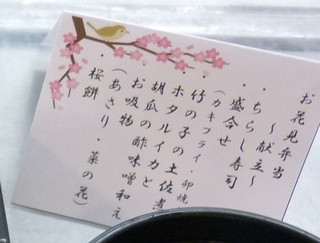 お花見弁当
～献立～
・ちらし寿司
・盛合せ
(カキフライ・卵焼
・竹の子の土佐煮
・ホタルイカと
胡瓜の酢味噌和え
・お吸物
(あさり・菜の花)
・桜餅